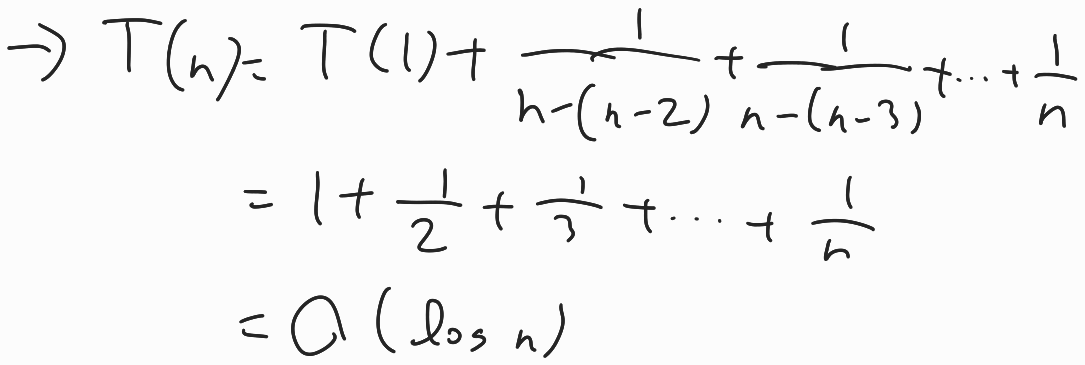 → T(n) = T(1) + 1/(n-(n-2)) + 1/(n-(n-3)) + ... + 1/n
= 1 + 1/2 + 1/3 + ... + 1/n
= O(log n)